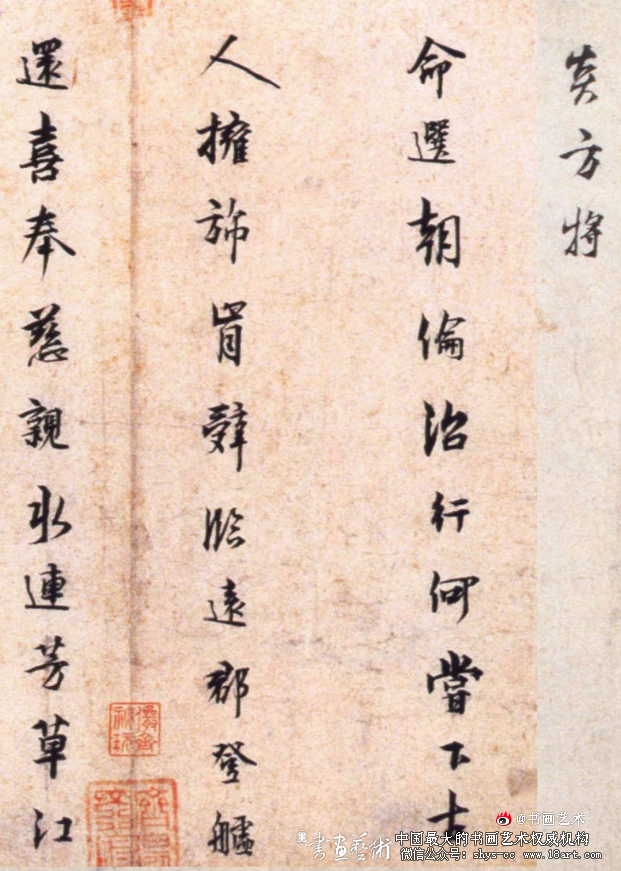 炎方将
命選朝倫治行何嘗下
人擁旆肯辭臨遠郡登艫
還喜奉慈親水連芳草江
@书画艺术
書畫藝術
中国最大的书画艺术权威机构
微信公众号：shys-cc www.18art.com